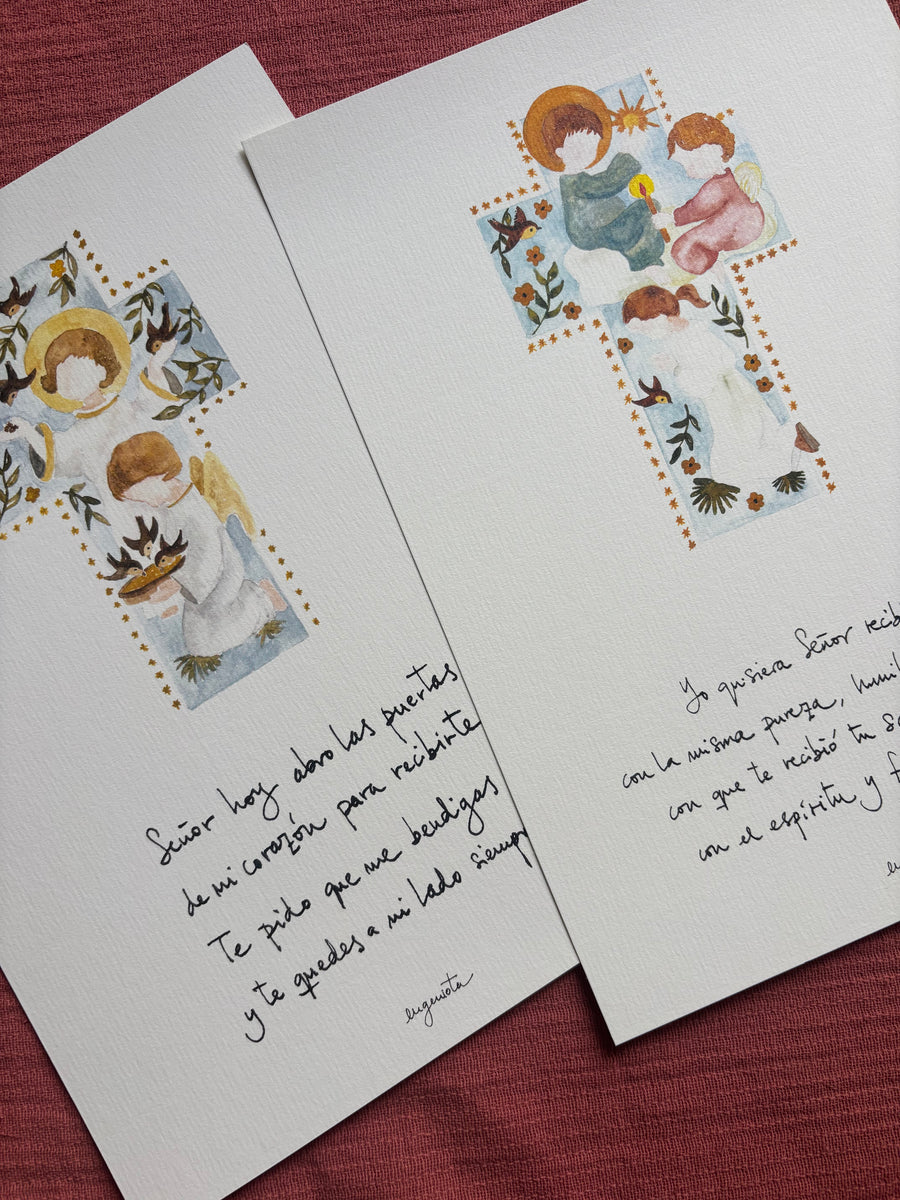 Señor hoy abro las puertas
de mi corazón para recibirte
Te pido que me bendigas
y te quedes a mi lado siemp
eugeniota
Yo quisiera Señor recib
con la misma pureza, humil
con que te recibió tu Sa
con el espíritu y f